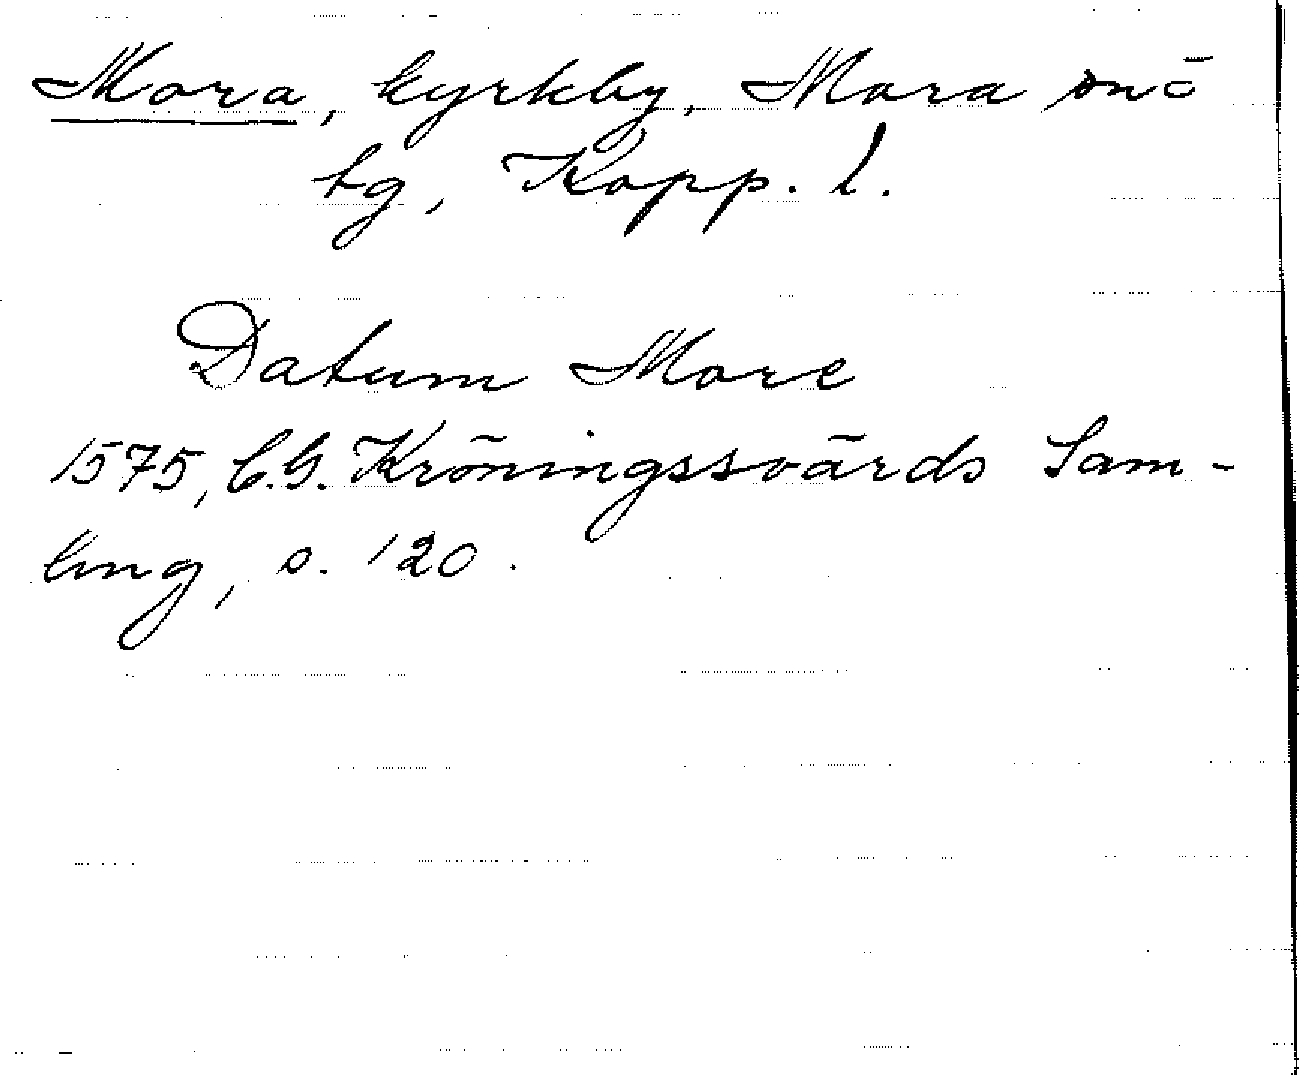 Mora, kyrkby, Mora sn o
tg, Kopp. l.
Datum More
1575, C.G. Kröningssvärds Sam-
ling, s. 120.